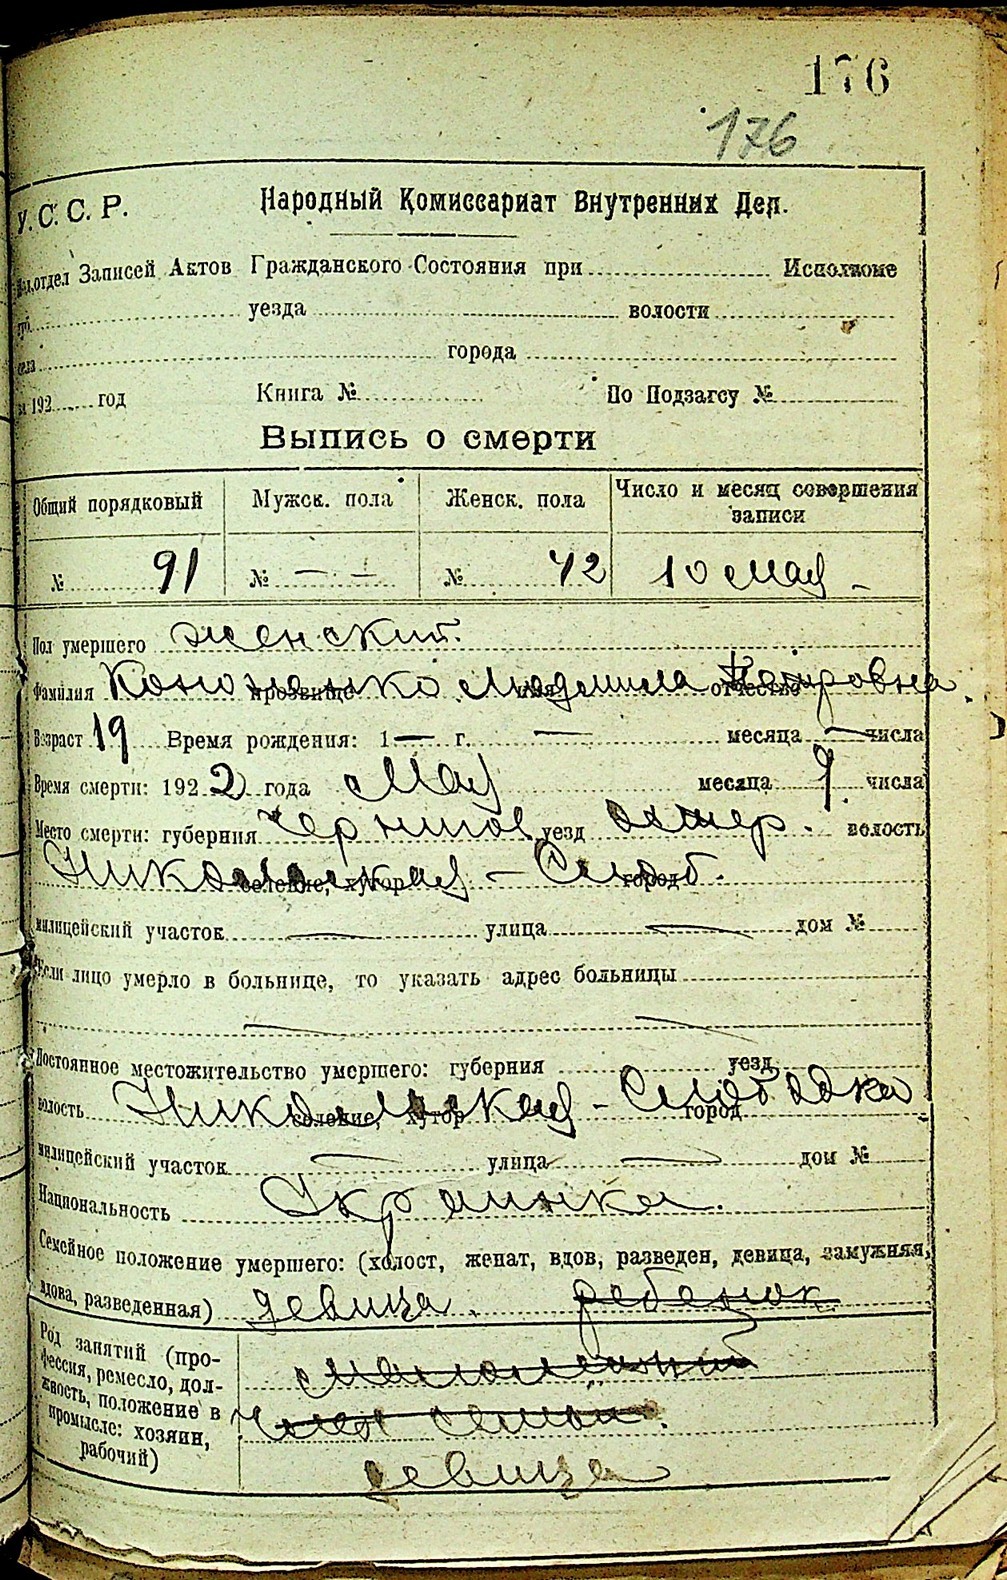 176
176
У. С. С. Р. Народный Комиссариат Внутренних Дел.
отдел Записей Актов Гражданского Состояния при Исполкоме
губ. уезда волости
села города
за 192 год Книга № По Подзагсу №
Выпись о смерти
Общий порядковый Мужск. пола Женск. пола Число и месяц совершения записи
№ 91 № — — № 42 10 Мая –
Пол умершего женский.
Фамилия Кононенко прозвище Людмила имя Петровна отчество
Возраст 19 Время рождения: 1— г. — месяца — числа
Время смерти: 1922 года Мая месяца 9 числа
Место смерти: губерния Чернигов уезд Остер. волость
Никольская – Слоб.
селение, хутор город
милицейский участок — улица — дом №
Если лицо умерло в больнице, то указать адрес больницы
— —
Постоянное местожительство умершего: губерния уезд
волость Никольская – Слободка
селение, хутор город
милицейский участок — улица — дом №
Национальность Украинка.
Семейное положение умершего: (холост, женат, вдов, разведен, девица, замужняя,
вдова, разведенная) девица. ребенок
Род занятий (про-
фессия, ремесло, дол-
жность, положение в
промысле: хозяин,
рабочий)
малолетний
Член семьи.
девица